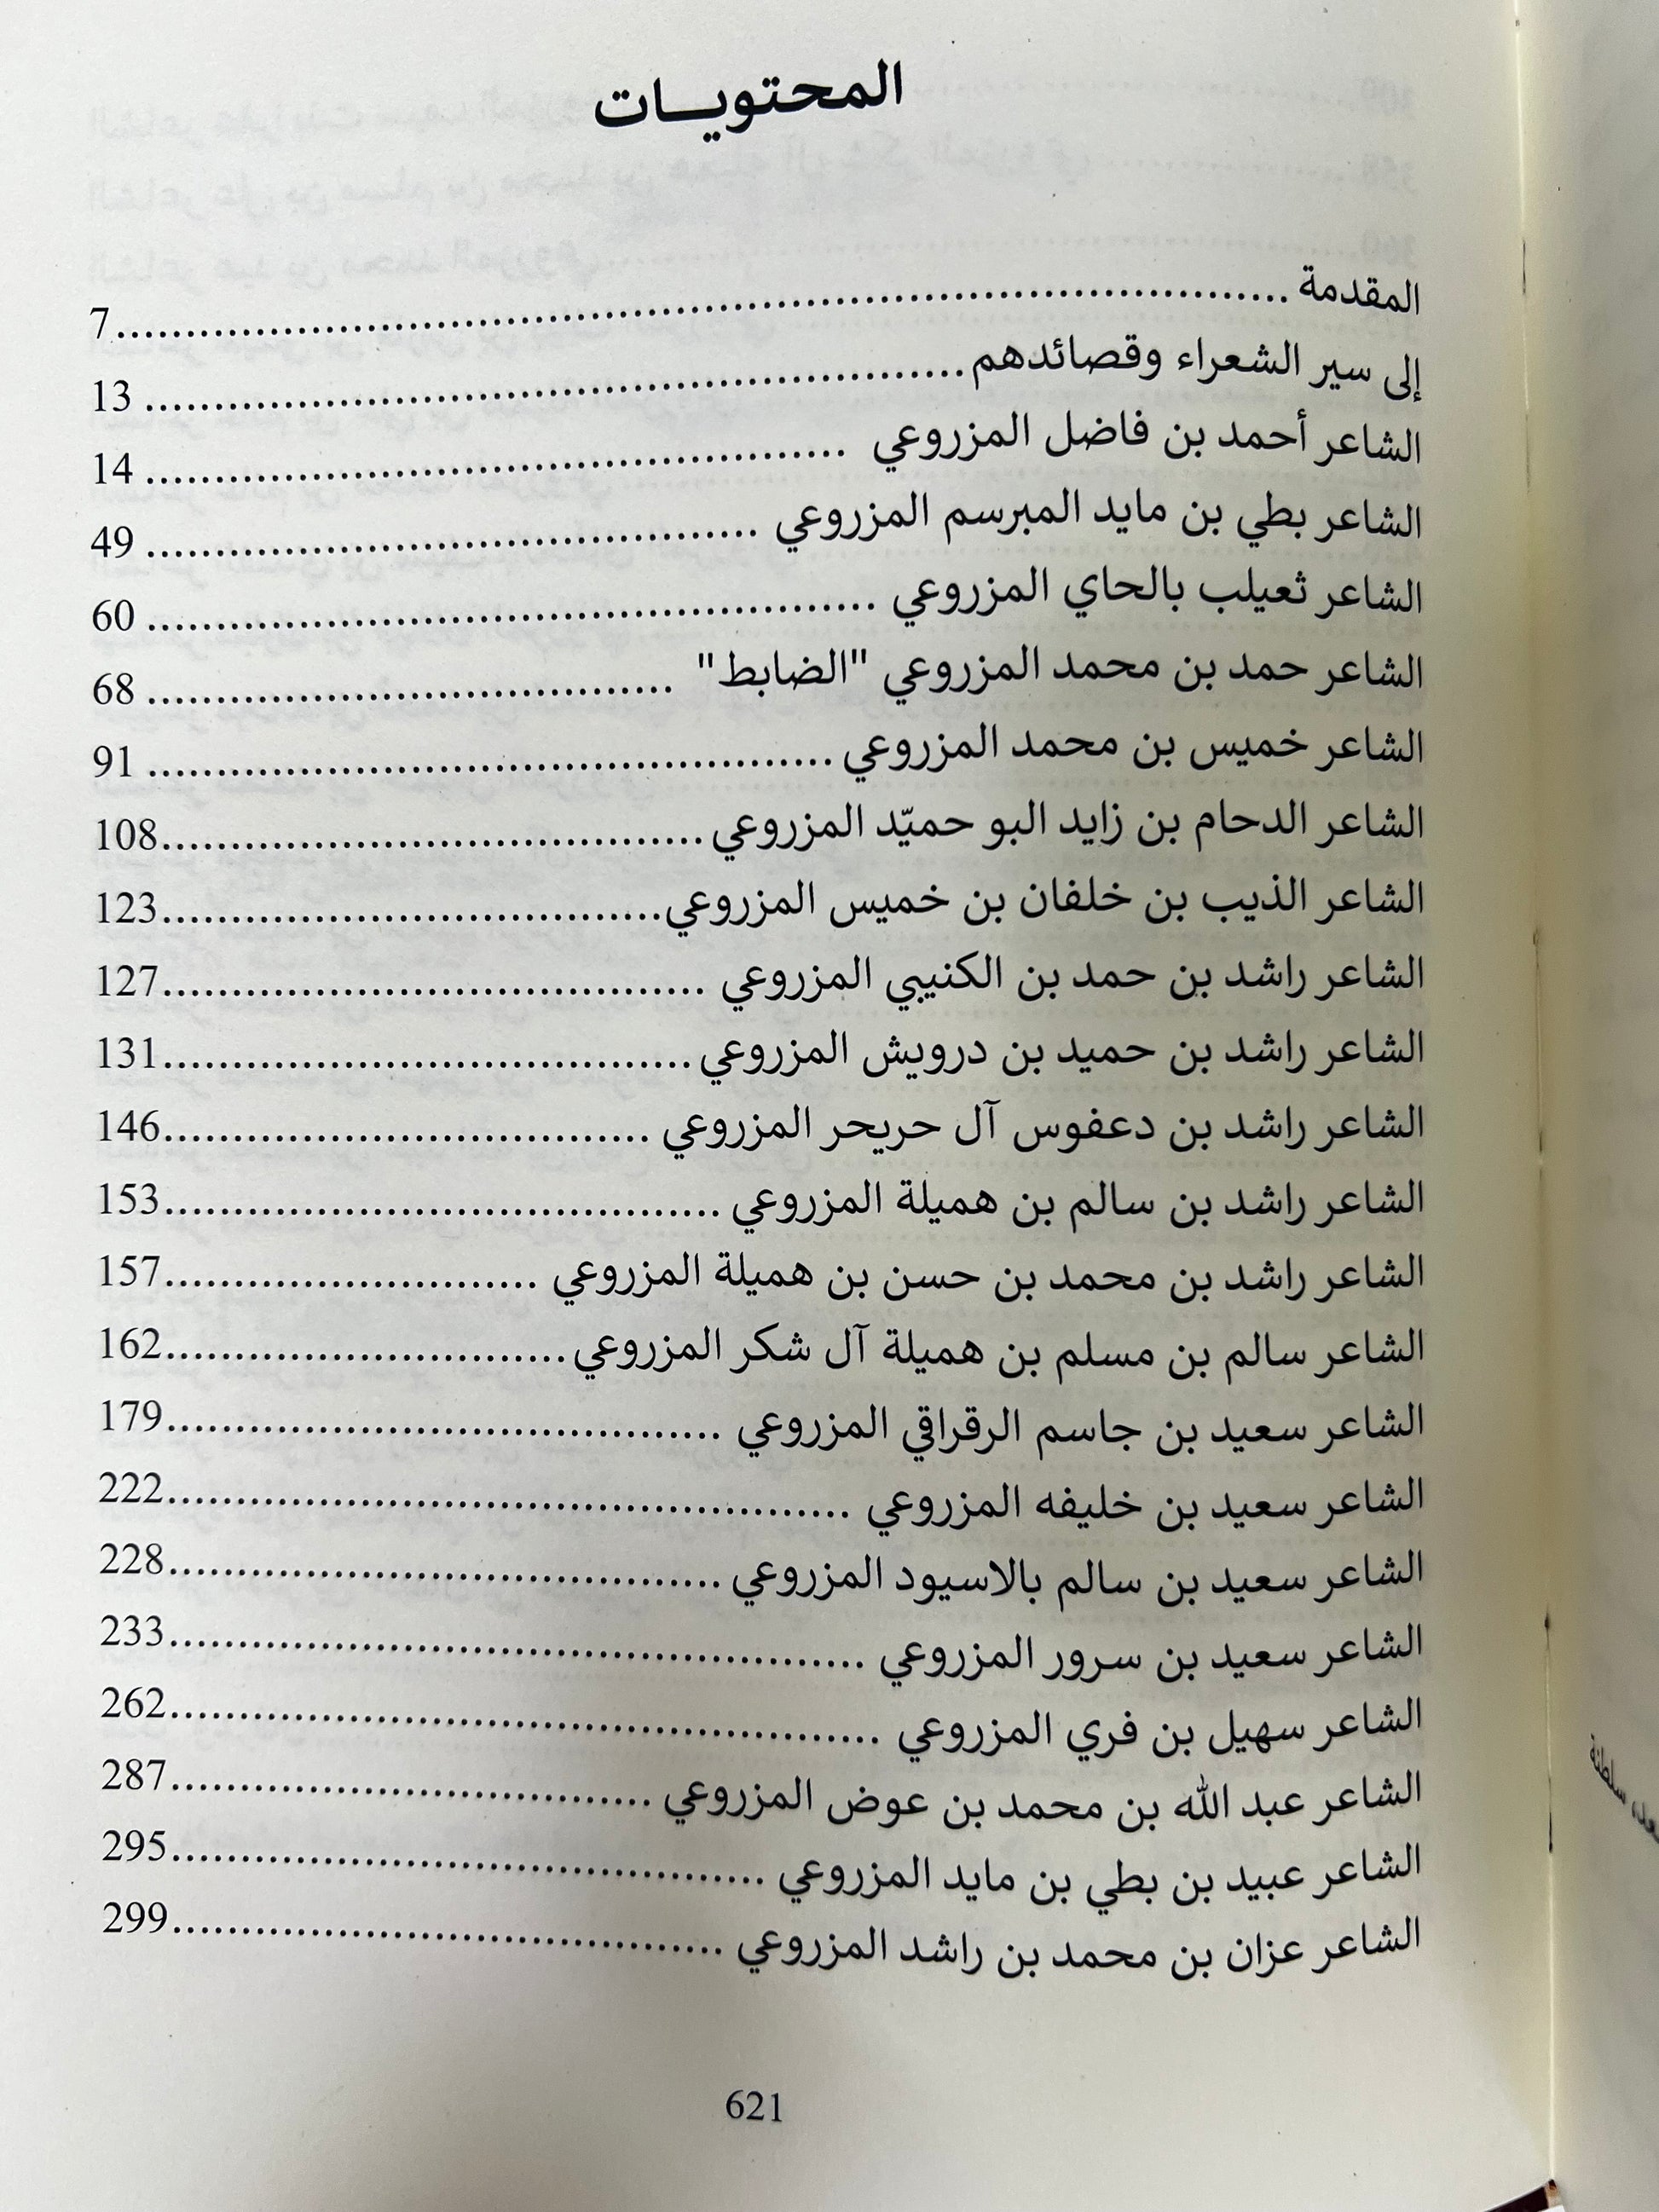 المحتويات
المقدمة ........................................................................ 7
إلى سير الشعراء وقصائدهم ........................................................ 13
الشاعر أحمد بن فاضل المزروعي ........................................................ 14
الشاعر بطي بن مايد المبرسم المزروعي ........................................................ 49
الشاعر ثعيلب بالحاي المزروعي ........................................................ 60
الشاعر حمد بن محمد المزروعي "الضابط" ................................................ 68
الشاعر خميس بن محمد المزروعي ........................................................ 91
الشاعر الدحام بن زايد البو حميّد المزروعي ................................................ 108
الشاعر الذيب بن خلفان بن خميس المزروعي ................................................ 123
الشاعر راشد بن حمد بن الكنيبي المزروعي ................................................ 127
الشاعر راشد بن حميد بن درويش المزروعي ................................................ 131
الشاعر راشد بن دعفوس آل حريحر المزروعي ................................................ 146
الشاعر راشد بن سالم بن هميلة المزروعي ................................................ 153
الشاعر راشد بن محمد بن حسن بن هميلة المزروعي ........................................ 157
الشاعر سالم بن مسلم بن هميلة آل شكر المزروعي ........................................ 162
الشاعر سعيد بن جاسم الرقراقي المزروعي ................................................ 179
الشاعر سعيد بن خليفه المزروعي ........................................................ 222
الشاعر سعيد بن سالم بالاسيود المزروعي ................................................ 228
الشاعر سعيد بن سرور المزروعي ........................................................ 233
الشاعر سهيل بن فري المزروعي ........................................................ 262
الشاعر عبد الله بن محمد بن عوض المزروعي ................................................ 287
الشاعر عبيد بن بطي بن مايد المزروعي ................................................ 295
الشاعر عزان بن محمد بن راشد المزروعي ................................................ 299
621
سلطنة